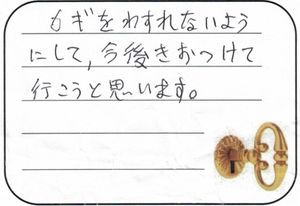 カギをわすれないよう
にして,今後きおつけて
行こうと思います。